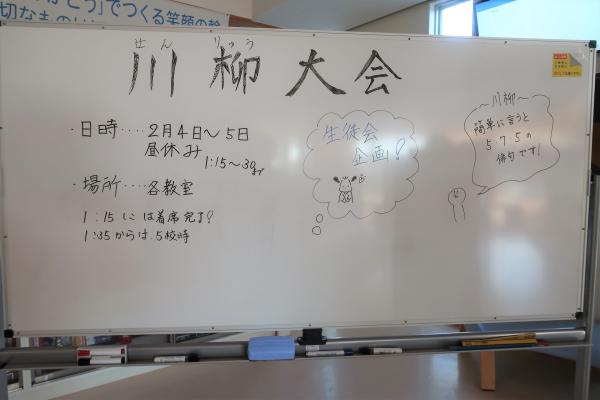 でつくる笑顔の輪
切なものいい
せん りゅう
川柳大会
・日時‥‥2月4日〜5日
昼休み
1:15〜30まで
・場所‥‥各教室
1:15には着席完了!
1:35からは5校時
生徒会
企画!
川柳〜
簡単に言うと
575の
俳句です!